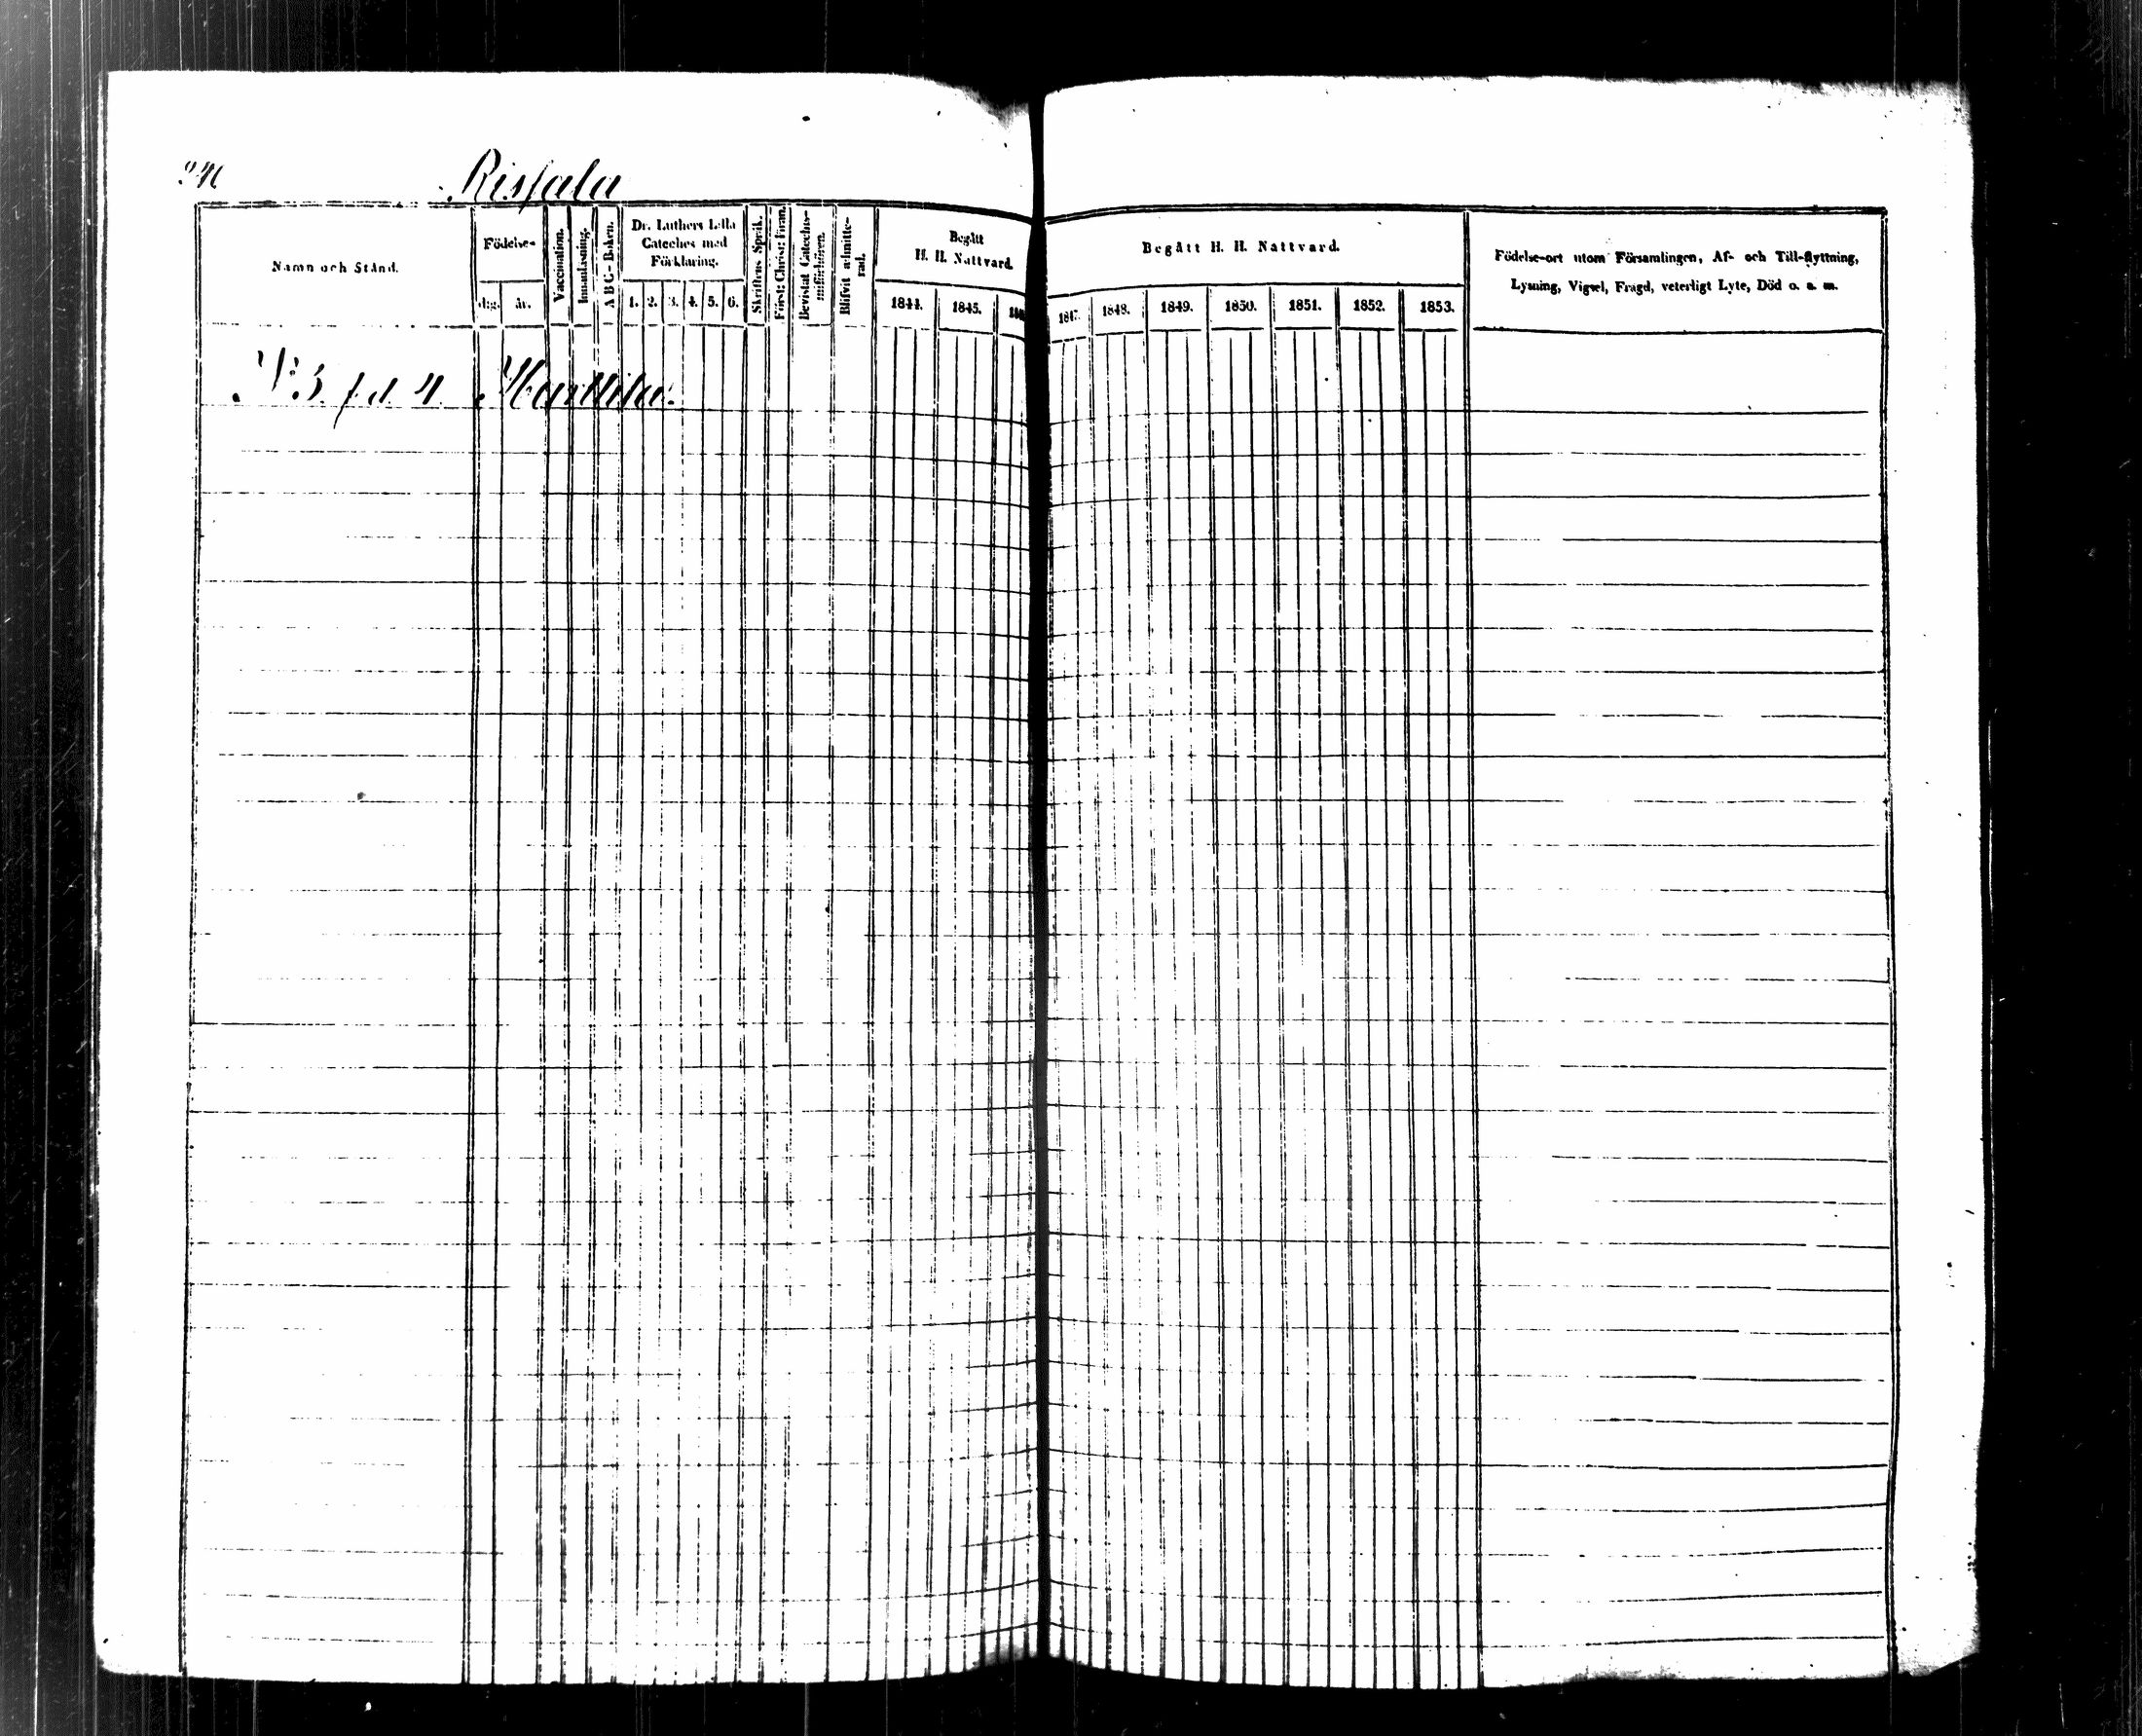 Risfala
Namn och Stånd.
Födelse-
dag.
år.
Vaccination.
Innanläsning.
A B C - Boken.
Dr. Luthers Lilla
Cateches med
Förklaring.
1. 2. 3. 4. 5. 6.
Skriftens Språk.
Först: Christ: Fören.
Bevistat Catechis-
Blifvit admitte-
rad.
Begått
H. H. Nattvard.
1844. 1845.
Begått H. H. Nattvard.
1847. 1848. 1849. 1850. 1851. 1852. 1853.
Födelse-ort utom Församlingen, Af- och Till-flyttning,
Lysning, Vigsel, Frägd, veterligt Lyte, Död o. s. m.
N:3 f d 4 Harttila.